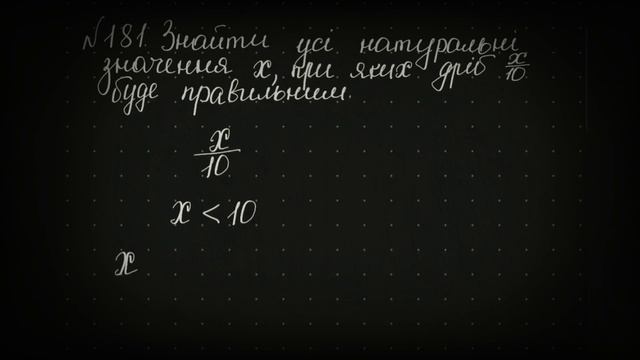 №181 Знайти усі натуральні
значення x, при яких дріб x/10
буде правильним.
x/10
x < 10
x